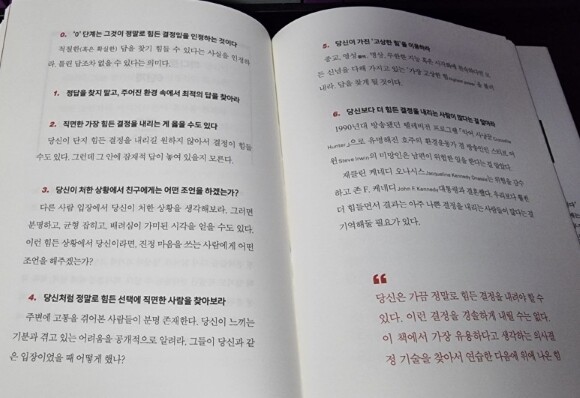 0. '0' 단계는 그것이 정말로 힘든 결정임을 인정하는 것이다
적절한(혹은 확실한) 답을 찾기 힘들 수 있다는 사실을 인정하
라. 틀린 답조차 없을 수 있다는 의미다.
1. 정답을 찾지 말고, 주어진 환경 속에서 최적의 답을 찾아라
2. 직면한 가장 힘든 결정을 내리는 게 옳을 수도 있다
당신이 단지 힘든 결정을 내리길 원하지 않아서 결정이 힘들
수도 있다. 그런데 그 안에 잠재적 답이 놓여 있을지 모른다.
3. 당신이 처한 상황에서 친구에게는 어떤 조언을 하겠는가?
다른 사람 입장에서 당신이 처한 상황을 생각해보라. 그러면
분명하고, 균형 잡히고, 배려심이 가미된 시각을 얻을 수도 있다.
이런 힘든 상황에서 당신이라면, 진정 마음을 쓰는 사람에게 어떤
조언을 해주겠는가?
4. 당신처럼 정말로 힘든 선택에 직면한 사람을 찾아보라
주변에 고통을 겪어본 사람들이 분명 존재한다. 당신이 느끼는
기분과 겪고 있는 어려움을 공개적으로 알려라. 그들이 당신과 같
은 입장이었을 때 어떻게 했나?
5. 당신이 가진 '고상한 힘'을 이용하라
종교, 영성, 명상, 무한한 지능 혹은
든 신념을 다해 가지고 있는 '가장 고상한 힘'을 불러
내라. 답을 찾게 될 것이다.
6. 당신보다 더 힘든 결정을 내리는 사람이 많다는 걸 알아라
1990년대 방송됐던 텔레비전 프로그램 「악어 사냥꾼Crocodile
Hunter」으로 유명해진 호주의 환경운동가 겸 방송인인 스티브 어
윈Steve Irwin의 미망인은 남편이 위험한 일을 한다는 걸 알았다.
재클린 케네디 오나시스Jacqueline Kennedy Onassis는 위험을 감수
하고 존 F. 케네디John F. Kennedy 대통령과 결혼했다. 우리보다 훨씬
더 힘들면서 결과는 아주 나쁜 결정을 내리는 사람들이 많다는 걸
기억해둘 필요가 있다.
“
당신은 가끔 정말로 힘든 결정을 내려야 할 수
있다. 이런 결정을 경솔하게 내릴 수는 없다.
이 책에서 가장 유용하다고 생각하는 의사결
정 기술을 찾아서 연습한 다음에 위에 나온 힘